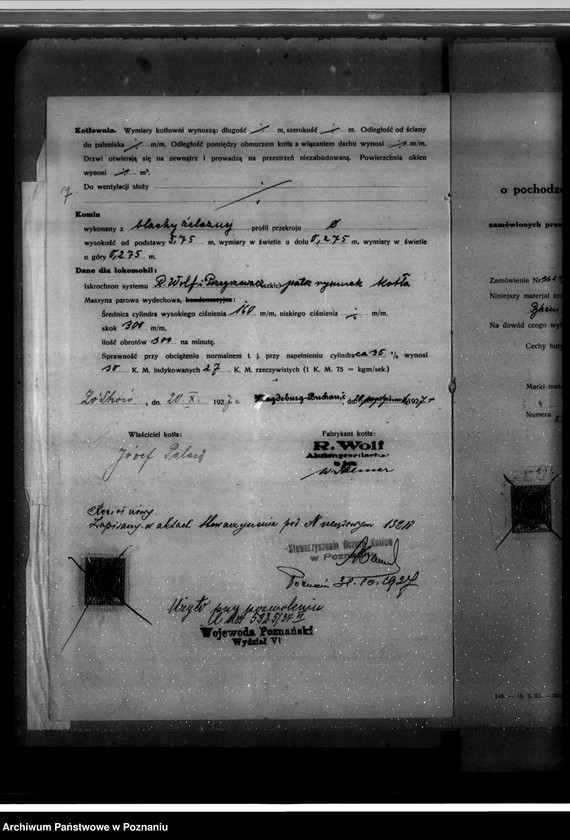 Kotłownia. Wymiary kotłowni wynoszą: długość m, szerokość m. Odległość od ściany
do paleniska m/m. Odległość pomiędzy obmurzem kotła a wiązaniem dachu wynosi m/m.
Drzwi otwierają się na zewnątrz i prowadzą na przestrzeń niezabudowaną. Powierzchnia okien
wynosi m².
Do wentylacji służy
Komin
wykonany z blachy żelaznej profil przekroju
wysokość od podstawy 5,75 m, wymiary w świetle u dołu 0,275 m, wymiary w świetle
u góry 0,275 m.
Dane dla lokomobil:
Iskrochron systemu R. Wolf patrz rysunek kotła
Maszyna parowa wydechowa, kondensacyjna:
Średnica cylindra wysokiego ciśnienia 160 m/m, niskiego ciśnienia m/m.
skok 300 m/m,
ilość obrotów 300 na minutę.
Sprawność przy obciążeniu normalnem t. j. przy napełnieniu cylindra ca 35 % wynosi
30 K. M. indykowanych 27 K. M. rzeczywistych (1 K. M. 75 = kgm/sek.)
dn. 20. X. 1927 r. Magdeburg-Buckau, dn. 1927 r.
Właściciel kotła:
Józef
Fabrykant kotła:
R. Wolf
Aktiengesellschaft
Kocioł nowy.
Zapisany w aktach Stowarzyszenia pod N
Stowarzyszenie Dozoru Kotłów
w Poznaniu
Poznań 31. 10. 1927
Użyto przy pozwoleniu
Wojewoda Poznański
Wydział VI
o pochodze
zamówionych prze
Zamówienie Nr.
Niniejszy materjał zro
Na dowód czego wy
Cechy hut
Marki mate
Numera
Archiwum Państwowe w Poznaniu